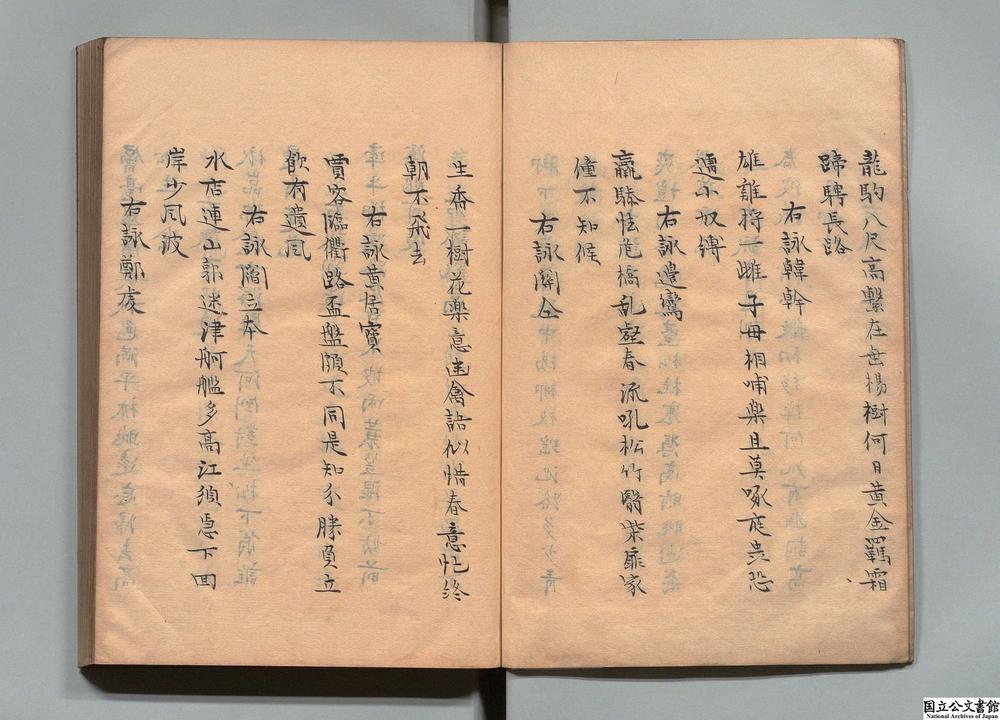 龍駒八尺高繫在垂楊樹何日黄金羈霜
蹄騁長路
右詠韓幹
雄雖將子雌子母相哺樂且莫啄庭
遭小奴縛
右詠邊鸞
羸驂怯危橋乱壑春流吼松竹翳柴扉家
僮不知候
右詠關仝
生香一樹花樂意幽禽語似惜春意忙終
朝不飛去
右詠黄居寶
賈客臨衢路盃盤頗不同是知分勝負立
飲有遺風
右詠閻立本
水店連山郭迷津舸艦多高江須急下回
岸少風波
右詠鄭虔
国立公文書館
National Archives of Japan